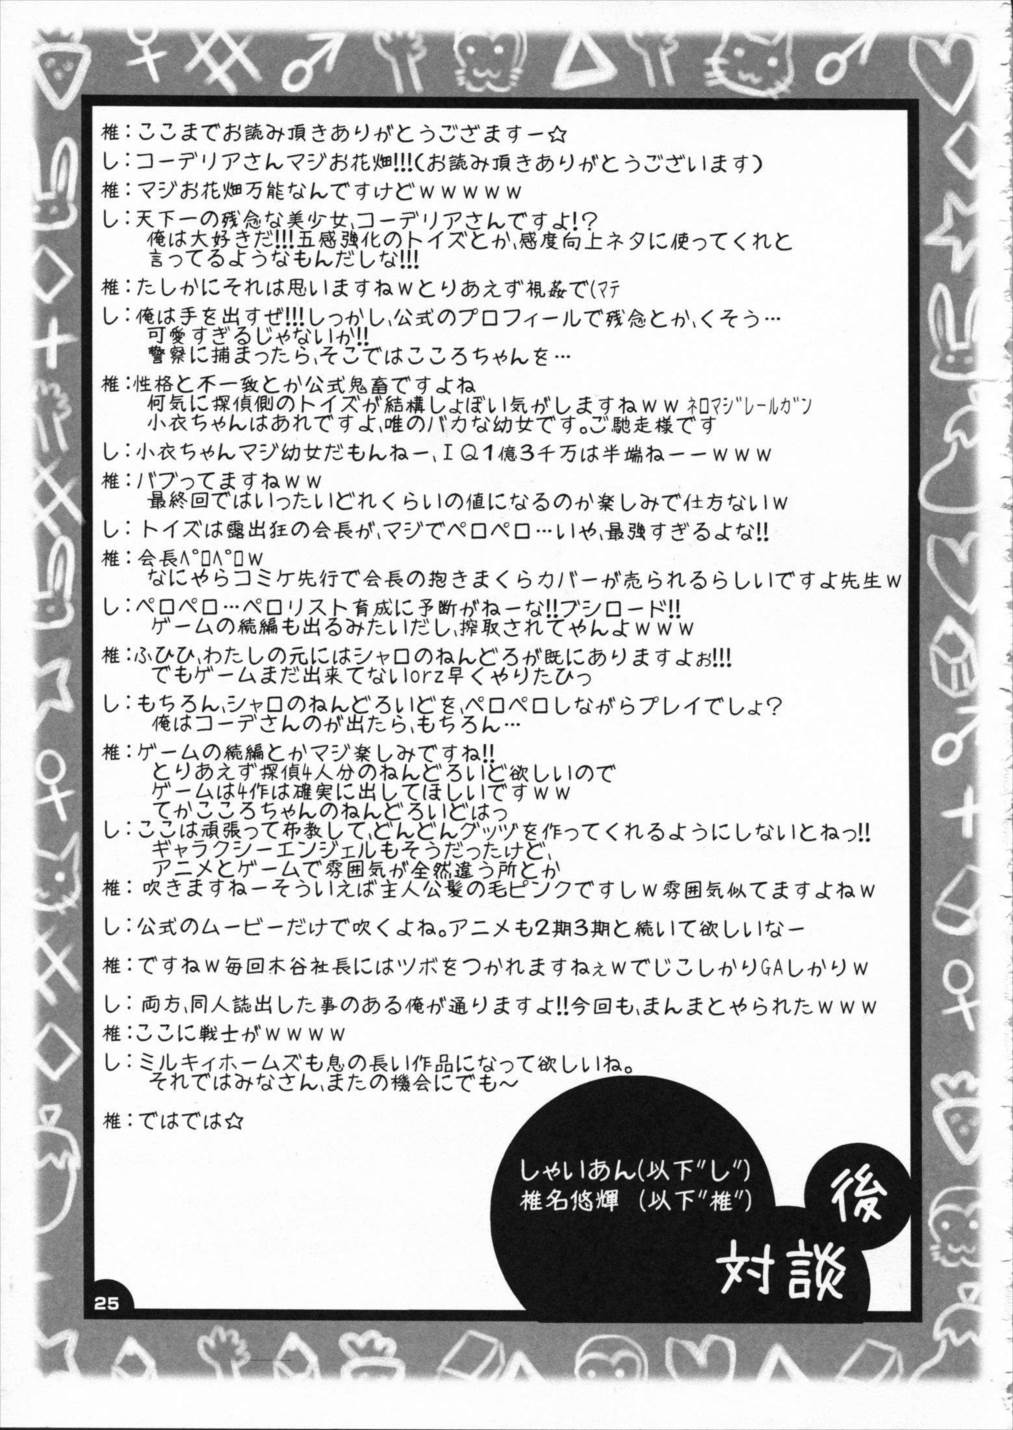 椎：ここまでお読み頂きありがとうござますー☆
し：コーデリアさんマジお花畑!!!(お読み頂きありがとうございます)
椎：マジお花畑万能なんですけどｗｗｗｗｗ
し：天下一の残念な美少女、コーデリアさんですよ!？
俺は大好きだ!!!五感強化のトイズとか、感度向上ネタに使ってくれと
言ってるようなもんだしな!!!
椎：たしかにそれは思いますねｗとりあえず視姦で(ﾏﾃ
し：俺は手を出すぜ!!!しっかし、公式のプロフィールで残念とか、くそう…
可愛すぎるじゃないか!!
警察に捕まったら、そこではこころちゃんを…
椎：性格と不一致とか公式鬼畜ですよね
何気に探偵側のトイズが結構しょぼい気がしますねｗｗ ﾈﾛﾏｼﾞﾚｰﾙｶﾞﾝ
小衣ちゃんはあれですよ、唯のバカな幼女です。ご馳走様です
し：小衣ちゃんマジ幼女だもんねー、ＩＱ１億３千万は半端ねーーｗｗｗ
椎：バブってますねｗｗ
最終回ではいったいどれくらいの値になるのか楽しみで仕方ないｗ
し：トイズは露出狂の会長が、マジでペロペロ…いや、最強すぎるよな!!
椎：会長ﾍﾟﾛﾍﾟﾛｗ
なにやらコミケ先行で会長の抱きまくらカバーが売られるらしいですよ先生ｗ
し：ペロペロ…ペロリスト育成に予断がねーな!!ブシロード!!
ゲームの続編も出るみたいだし、搾取されてやんよｗｗｗ
椎：ふひひ、わたしの元にはシャロのねんどろが既にありますよぉ!!!
でもゲームまだ出来てないorz早くやりたひっ
し：もちろん、シャロのねんどろいどを、ペロペロしながらプレイでしょ？
俺はコーデさんのが出たら、もちろん…
椎：ゲームの続編とかマジ楽しみですね!!
とりあえず探偵4人分のねんどろいど欲しいので
ゲームは4作は確実に出してほしいですｗｗ
てかこころちゃんのねんどろいどはっ
し：ここは頑張って布教して、どんどんグッヅを作ってくれるようにしないとねっ!!
ギャラクシーエンジェルもそうだったけど、
アニメとゲームで雰囲気が全然違う所とか
椎：吹きますねーそういえば主人公髪の毛ピンクですしｗ雰囲気似てますよねｗ
し：公式のムービーだけで吹くよね。アニメも２期３期と続いて欲しいなー
椎：ですねｗ毎回木谷社長にはツボをつかれますねぇｗでじこしかりGAしかりｗ
し：両方、同人誌出した事のある俺が通りますよ!!今回も、まんまとやられたｗｗｗ
椎：ここに戦士がｗｗｗｗ
し：ミルキィホームズも息の長い作品になって欲しいね。
それではみなさん、またの機会にでも～
椎：ではでは☆
しゃいあん(以下"し")
椎名悠輝　(以下"椎")
後
対談
25